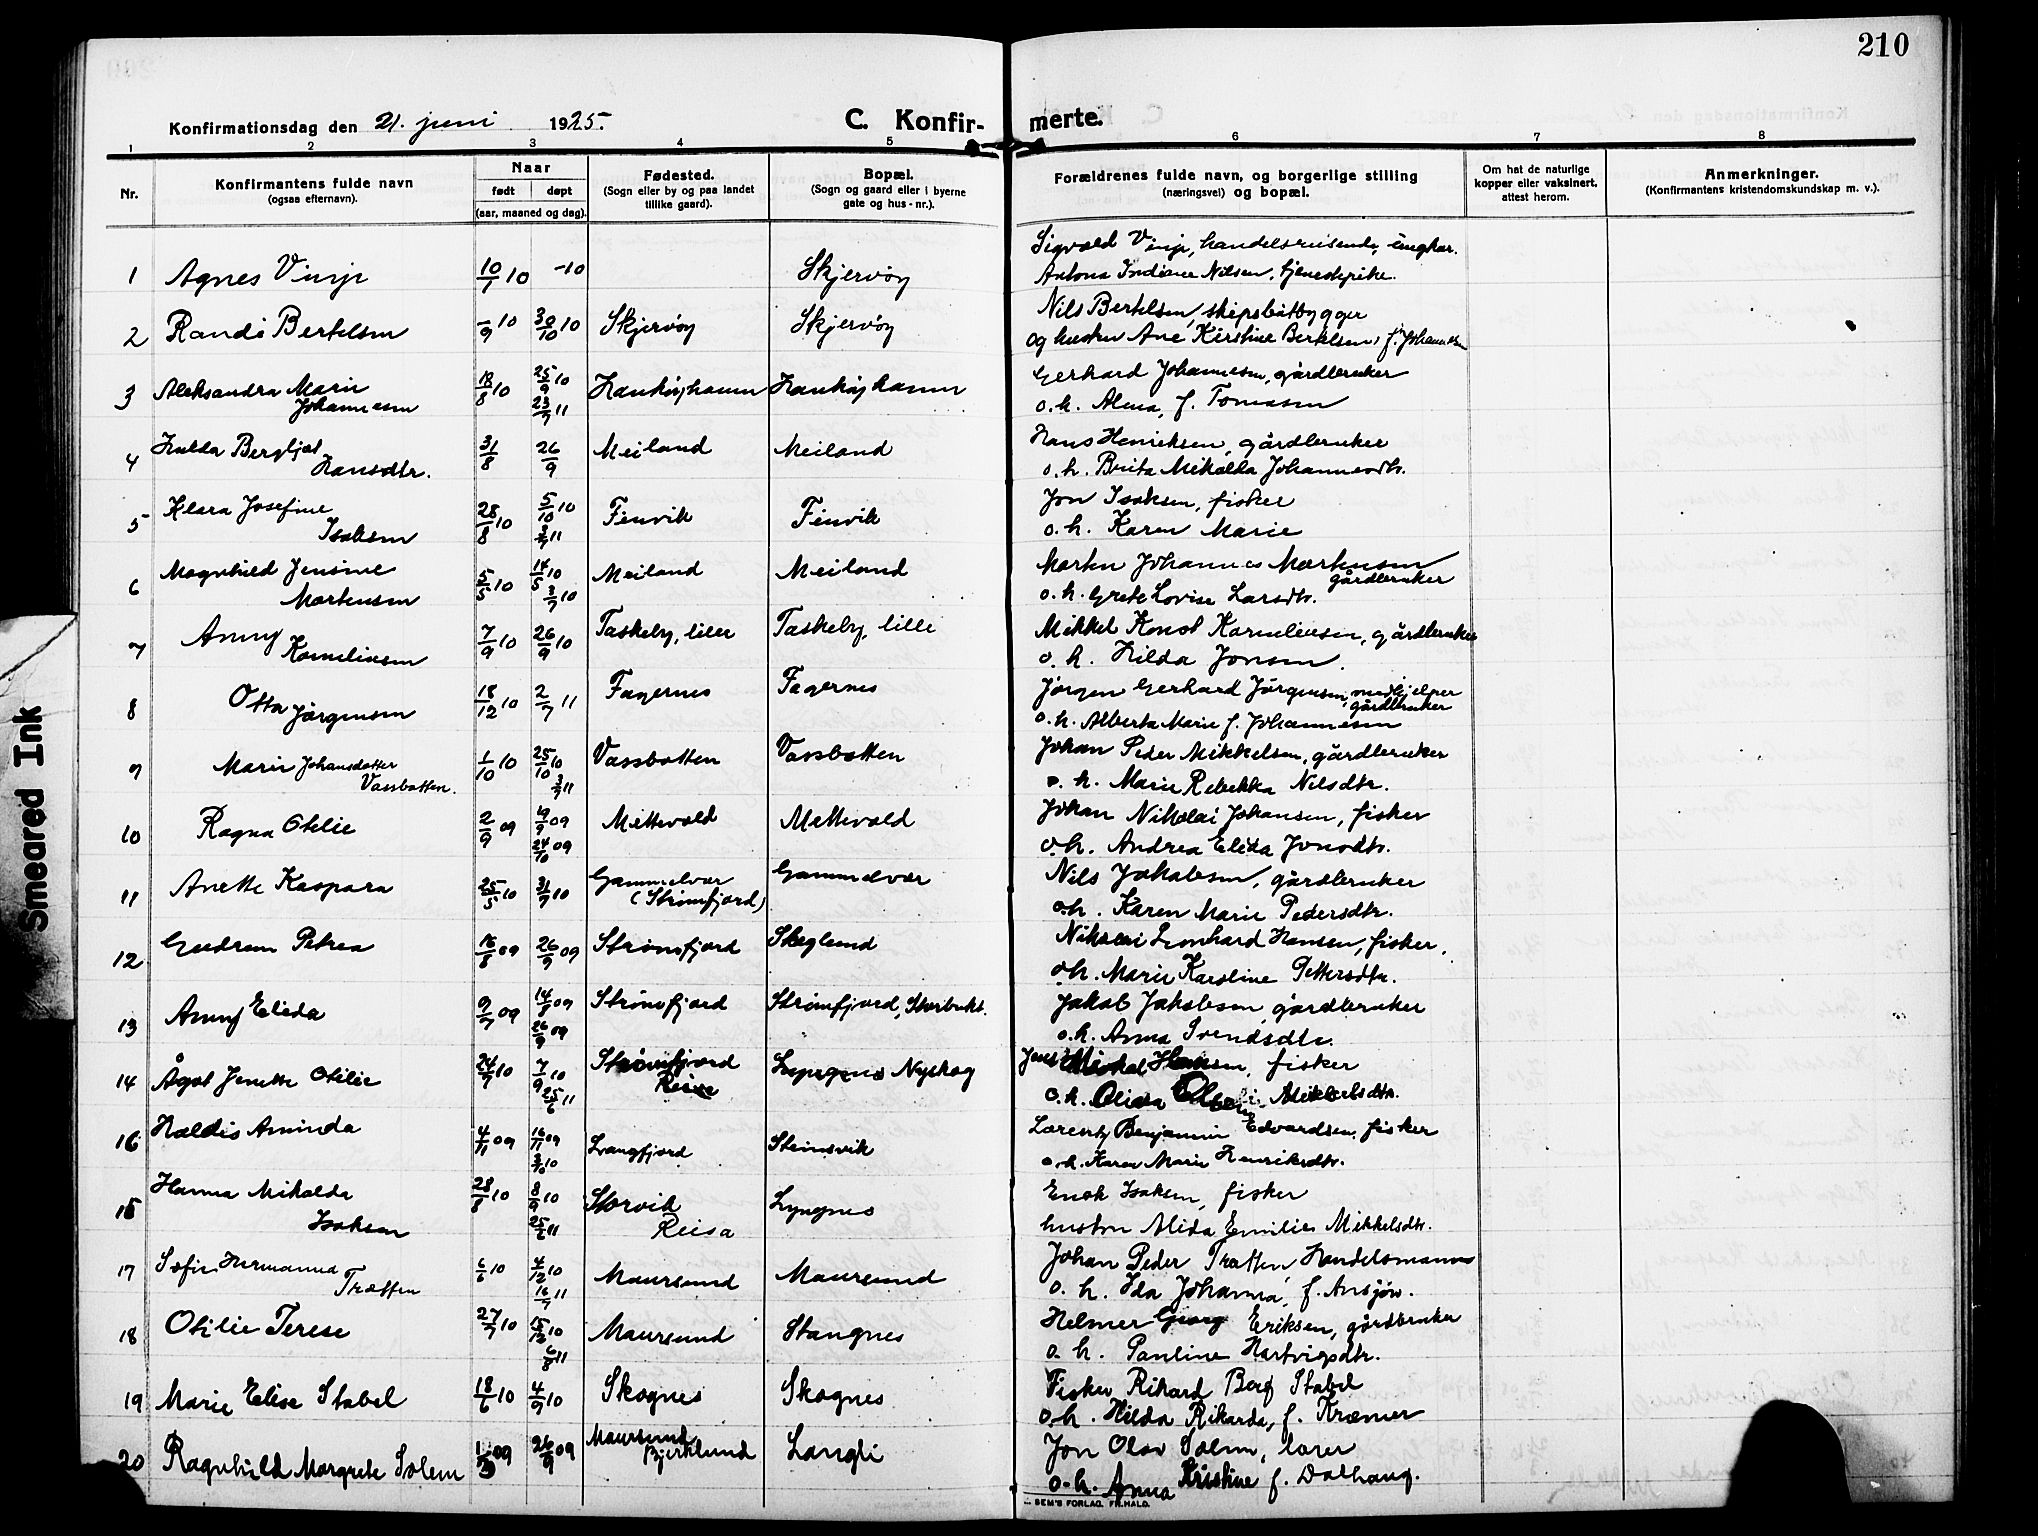 210
Konfirmationsdag den 21. juni 1925.
C. Konfir- merte.
1 2 3 4 5 6 7 8
Nr.
Konfirmantens fulde navn
(ogsaa efternavn).
Naar
født døpt
(aar, maaned og dag).
Fødested.
(Sogn eller by og paa landet
tillike gaard).
Bopæl.
(Sogn og gaard eller i byerne
gate og hus-nr.).
Forældrenes fulde navn, og borgerlige stilling
(næringsvei) og bopæl.
Om hat de naturlige
kopper eller vaksinert,
attest herom.
Anmerkninger.
(Konfirmantens kristendomskundskap m. v.).
Sigvald Vinje, handelsreisende, ungkar.
1 Agnes Vinje 10/7 10 -10 Skjervøy
Antona Indiane Nilsen, tjenestepike.
Nils Bertelsen, skipsbåtbygger
2 Randi Bertelsen -/9 10 30/10 10 Skjervøy Skjervøy
og hustru Ane Kirstine Bertelsen, f. Johannesen
Gerhard Johannesen, gårdbruker
3 Aleksandra Marie 18/8 10 25/9 10 Haukøyhamn Haukøyhamn
Johannesen 23/7 11 o. h. Alma, f. Tomasen
Hans Henriksen, gårdbruker
4 Hulda Bergljot 31/8 26/9 Meiland Meiland
Hansdtr. o. h. Brita Mikalda Johannesdtr.
Jon Isaksen, fisker
5 Klara Josefine 28/8 10 5/10 10 Finvik Finvik
Isaksen o. h. Karen Marie
Morten Johannes Mortensen
6 Magnhild Jensine 5/5 10 14/5 10 Meiland Meiland gårdbruker
Mortensen 3/7 10 o. h. Grete Lovise Larsdtr.
7 Anny 7/9 10 26/9 10 Taskeby, lille Taskeby, lille Mikkel Konst Korneliusen, gårdbruker
Korneliusen o. h. Hilda Jonsen.
8 Otta Jørgensen 18/12 10 2/7 11 Fagernes Fagernes Jørgen Gerhard Jørgensen, medhjelper
gårdbruker
o. h. Alberta Marie f. Johannesen
9 Marie Johansdatter 1/10 10 25/10 10 Vassbotten Vassbotten Johan Peder Mikkelsen, gårdbruker
Vassbotten. 3/7 11 o. h. Marie Rebekka Nilsdtr.
10 Ragna Otilie 2/9 09 19/9 09 Mettevold Mettevold Johan Nikolai Johansen, fisker
24/10 09 o. h. Andrea Elida Jonsdtr.
11 Anette Kaspara 25/5 10 31/7 10 Gammelvær Gammelvær Nils Jakobsen, gårdbruker
(Strømfjord) o. h. Karen Marie Pedersdtr.
12 Gudrun Petrea 16/8 09 26/9 09 Strømfjord Skoglund Nikolai Leonhard Hansen, fisker.
o. h. Marie Karoline Pettersdtr.
13 Anny Elida 9/7 09 14/8 09 Strømfjord Strømfjord, Storbukt. Jakob Jakobsen, gårdbruker
26/9 09 o. h. Anna Svendsdtr.
14 Ågot Jenette Otilie 24/7 10 7/9 10 Strømfjord Nyskog Jens Mikal Hansen, fisker
25/6 11 Reisa o. h. Olida Mikkelsdtr.
16 Haldis Aminda 4/11 09 16/11 09 Langfjord Steinsvik Lorentz Benjamin Edvardsen, fisker
3/10 o. h. Karen Marie Henriksdtr.
15 Hanna Mikalda 28/8 10 8/9 10 Storvik Lyngnes Enok Isaksen, fisker
Isaksen 25/6 11 Reisa hustru Alida Emilie Mikkelsdtr.
17 Sofie Hermanna 6/6 10 4/12 10 Maursund Maursund Johan Peder Trætten, Handelsmann
Trætten 16/7 11 o. h. Ida Johanna, f. Ansjøn.
18 Otilie Terese 27/7 10 15/12 10 Maursund Stangnes Helmer Georg Eriksen, gårdbruker
6/8 11 o. h. Pauline Hartvigsdtr.
19 Marie Elise Stabel 18/6 10 4/9 10 Skognes Skognes Fisker Rikard Berg Stabel
o. h. Hilda Rikarda, f. Kræmer
20 Ragnhild Margrete Solem 09 26/9 09 Maursund Bjerklund Langli Jon Olav Solem, lærer
o. h. Anna Kristine f. Dalhaug.
SEM'S FORLAG. FR.HALD.
Smeared Ink